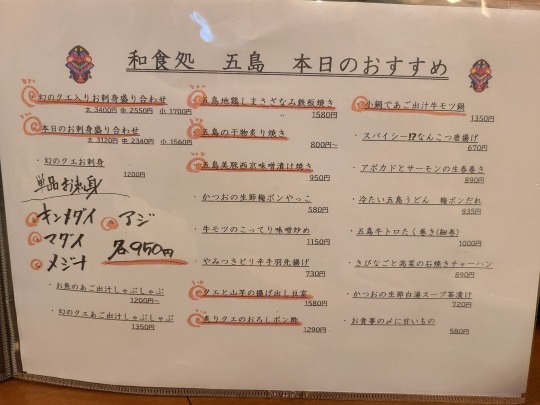 和食処 五島 本日のおすすめ
幻のクエ入りお刺身盛り合わせ
大 3400円 中 2550円 小 1700円
本日のお刺身盛り合わせ
大 3120円 中 2340円 小 1560円
・幻のクエお刺身
1200円
単品お刺身
キンメダイ
アジ
マダイ
メジナ
各950円
・お魚のあご出汁しゃぶしゃぶ
1200円~
・幻のクエあご出汁しゃぶしゃぶ
1350円
五島地鶏しまさざなみ鉄板焼き
1580円
五島の干物炙り焼き
800円~
五島美豚西京味噌漬け焼き
950円
・かつおの生節梅ポンやっこ
580円
・牛モツのこってり味噌炒め
1150円
・やみつきピリ辛手羽先揚げ
730円
クエと山芋の揚げ出し豆富
1580円
炙りクエのおろしポン酢
1290円
小鍋であご出汁牛モツ鍋
1350円
・スパイシー!?なんこつ唐揚げ
670円
・アボカドとサーモンの生春巻き
890円
・冷たい五島うどん 梅ポンだれ
935円
・五島牛トロたく巻き(細巻)
1000円
・きびなごと高菜の石焼きチャーハン
890円
・かつおの生節白湯スープ茶漬け
720円
・お食事の〆に甘いもの
580円